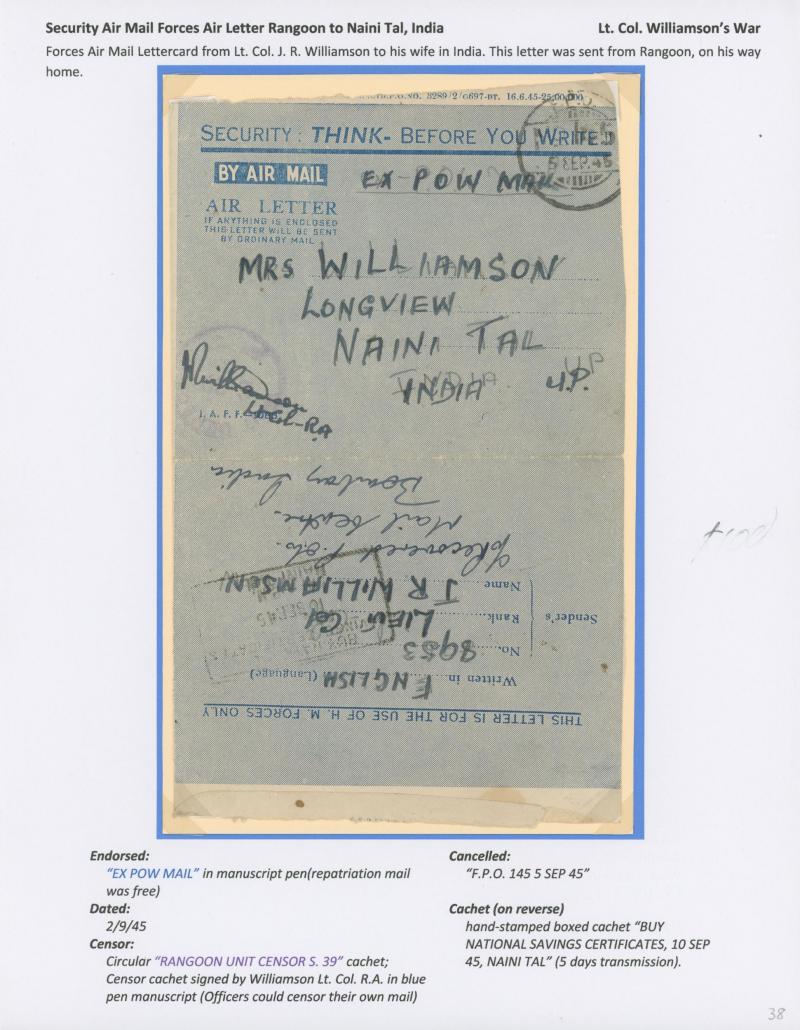 Security Air Mail Forces Air Letter Rangoon to Naini Tal, India
Lt. Col. Williamson's War
Forces Air Mail Lettercard from Lt. Col. J. R. Williamson to his wife in India. This letter was sent from Rangoon, on his way
home.
16.6.45-25,00,000
SECURITY: THINK- BEFORE YOU WRITE
5 SEP. 45
BY AIR MAIL
EX POW MAIL
AIR LETTER
IF ANYTHING IS ENCLOSED
THIS LETTER WILL BE SENT
BY ORDINARY MAIL
MRS WILLIAMSON
LONGVIEW
NAINI TAL
UP
INDIA U.P.
I. A. F. F.
Lt Col-RA
Bombay India
Mail Centre.
Recovered P.O.
Name J R WILLIAMSON
Sender's
Rank LIEUT Col
10 SEP.45
BUY NATIONAL
No. 8953
Written in ENGLISH (Language)
THIS LETTER IS FOR THE USE OF H. M. FORCES ONLY
Endorsed:
"EX POW MAIL" in manuscript pen(repatriation mail
was free)
Dated:
2/9/45
Censor:
Circular "RANGOON UNIT CENSOR S. 39" cachet;
Censor cachet signed by Williamson Lt. Col. R.A. in blue
pen manuscript (Officers could censor their own mail)
Cancelled:
"F.P.O. 145 5 SEP 45"
Cachet (on reverse)
hand-stamped boxed cachet "BUY
NATIONAL SAVINGS CERTIFICATES, 10 SEP
45, NAINI TAL" (5 days transmission).
38